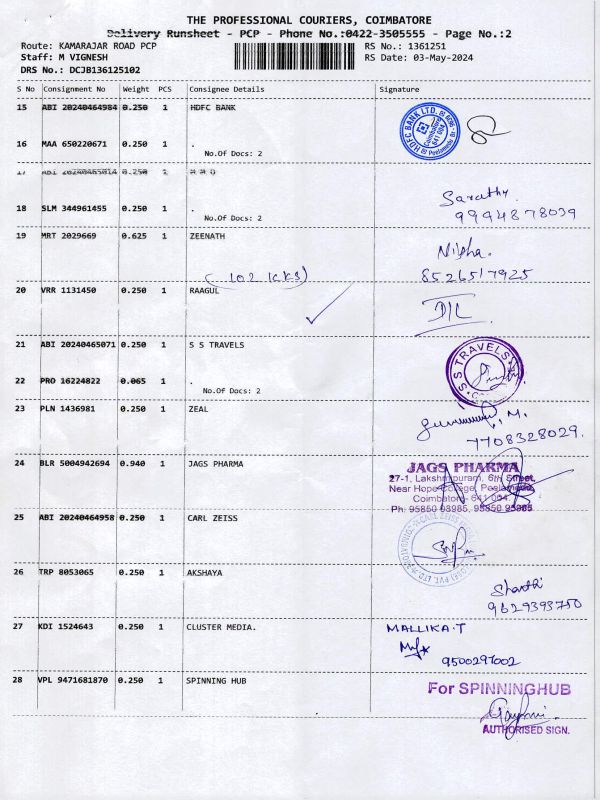 THE PROFESSIONAL COURIERS, COIMBATORE
Delivery Runsheet - PCP - Phone No.:0422-3505555 - Page No.:2
Route: KAMARAJAR ROAD PCP
RS No.: 1361251
Staff: M VIGNESH
RS Date: 03-May-2024
DRS No.: DCJB136125102
S No Consignment No Weight PCS Consignee Details Signature
15 ABI 20240464984 0.250 1 HDFC BANK
HDFC BANK LTD.
Coimbatore
641 004
16 MAA 650220671 0.250 1 .
No.Of Docs: 2
17 0.250 1
18 SLM 344961455 0.250 1 .
No.Of Docs: 2
Sarathy.
9994878039
19 MRT 2029669 0.625 1 ZEENATH
Nisha.
8526517925
20 VRR 1131450 0.250 1 RAAGUL
21 ABI 20240465071 0.250 1 S S TRAVELS
S S TRAVELS
22 PRO 16224822 0.065 1 .
No.Of Docs: 2
23 PLN 1436981 0.250 1 ZEAL
7708328029.
24 BLR 5004942694 0.940 1 JAGS PHARMA
JAGS PHARMA
27-1, Lakshmipuram, 6th Street,
Near Hope College, Peelamedu,
Coimbatore - 641 004.
Ph: 95850 98985, 95850 95985
25 ABI 20240464958 0.250 1 CARL ZEISS
CARL ZEISS
26 TRP 8053065 0.250 1 AKSHAYA
Shanthi
9629393750
27 KDI 1524643 0.250 1 CLUSTER MEDIA.
MALLIKA.T
9500297002
28 VPL 9471681870 0.250 1 SPINNING HUB
For SPINNINGHUB
AUTHORISED SIGN.